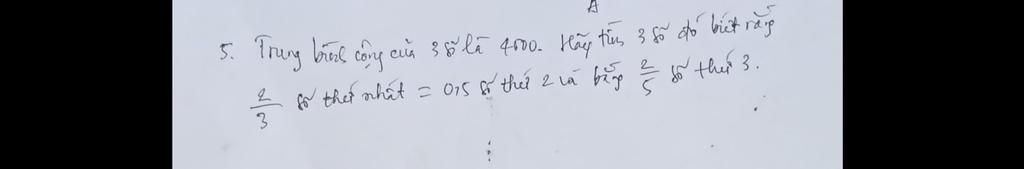 A
5. Trung bình cộng của 3 số là 4500. Hãy tìm 3 số đó biết rằng
2/3 số thứ nhất = 0,5 số thứ 2 và bằng 2/5 số thứ 3.